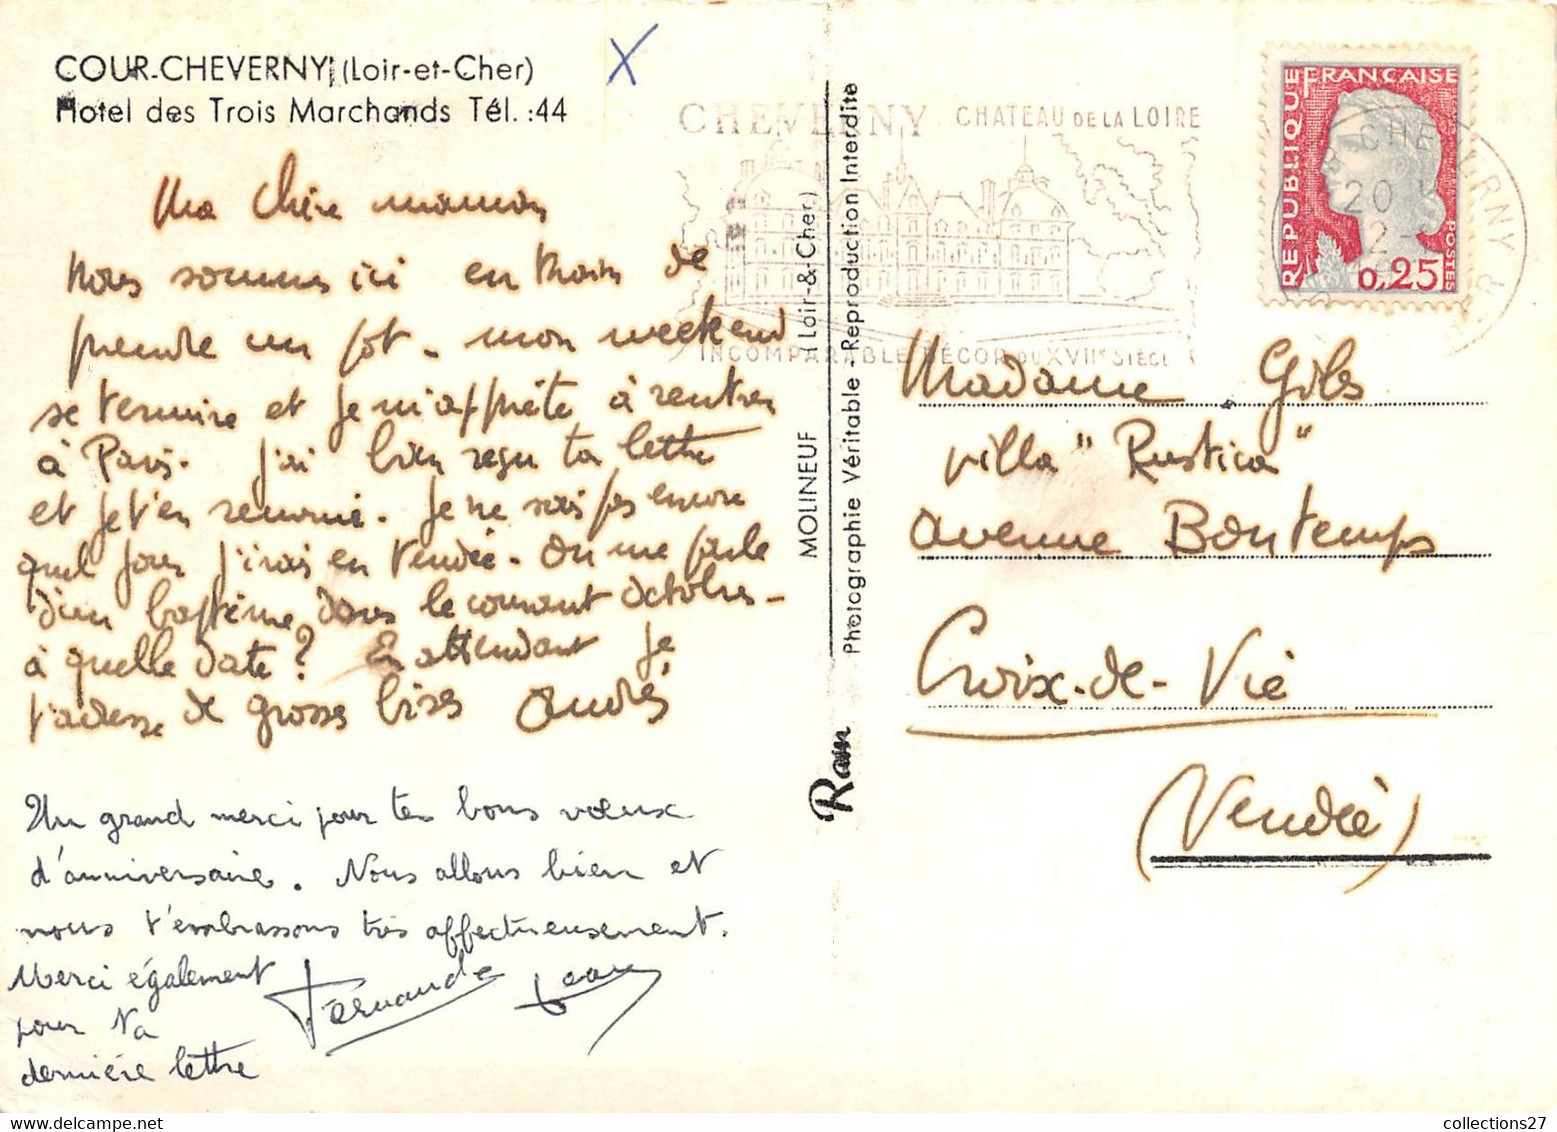 COUR-CHEVERNY (Loir-et-Cher)
Hotel des Trois Marchands Tél. :44
Ma chère maman
Nous sommes ici en train de
prendre un pot - mon weekend
se termine et je m'apprête à rentrer
à Paris. J'ai bien reçu ta lettre
et je t'en remercie. Je ne sais pas encore
quel jour j'irais en Vendée - On me parle
d'un baptême dans le courant octobre -
à quelle date ? En attendant je
t'adresse de grosses bises André
Un grand merci pour tes bons voeux
d'anniversaire. Nous allons bien et
nous t'embrassons très affectueusement.
Merci également
pour ta
dernière lettre
Fernande Jean
CHEVERNY CHATEAU DE LA LOIRE
INCOMPARABLE DECOR DU XVIIe SIECLE
MOLINEUF (Loir-&-Cher)
Photographie Véritable - Reproduction Interdite
Ram
REPUBLIQUE FRANCAISE
POSTES
0,25
CHEVERNY
20
Madame Gils
villa "Rustica"
avenue Bontemps
Croix-de-Vie
(Vendée)
collections27